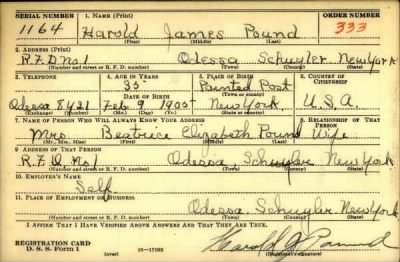 SERIAL NUMBER 1. NAME (Print) ORDER NUMBER
1164 Harold James Pound 333
(First) (Middle) (Last)
2. ADDRESS (Print)
R.F.D. No 1 Odessa Schuyler New York
(Number and street or R. F. D. number) (Town) (County) (State)
3. TELEPHONE 4. AGE IN YEARS 5. PLACE OF BIRTH 6. COUNTRY OF CITIZENSHIP
35 Painted Post
DATE OF BIRTH (Town or county)
Odessa 8421 Feb 9 1905 New York U.S.A.
(Exchange) (Number) (Mo.) (Day) (Yr.) (State or country)
7. NAME OF PERSON WHO WILL ALWAYS KNOW YOUR ADDRESS 8. RELATIONSHIP OF THAT PERSON
Mrs Beatrice Elizabeth Pound Wife
(Mr., Mrs., Miss) (First) (Middle) (Last)
9. ADDRESS OF THAT PERSON
R.F.D. No 1 Odessa, Schuyler New York
(Number and street or R. F. D. number) (Town) (County) (State)
10. EMPLOYER'S NAME
Self
11. PLACE OF EMPLOYMENT OR BUSINESS
Odessa Schuyler New York
(Number and street or R. F. D. number) (Town) (County) (State)
I AFFIRM THAT I HAVE VERIFIED ABOVE ANSWERS AND THAT THEY ARE TRUE.
REGISTRATION CARD
D. S. S. Form 1 (over) 16-17105 Harold J Pound
(Registrant's signature)